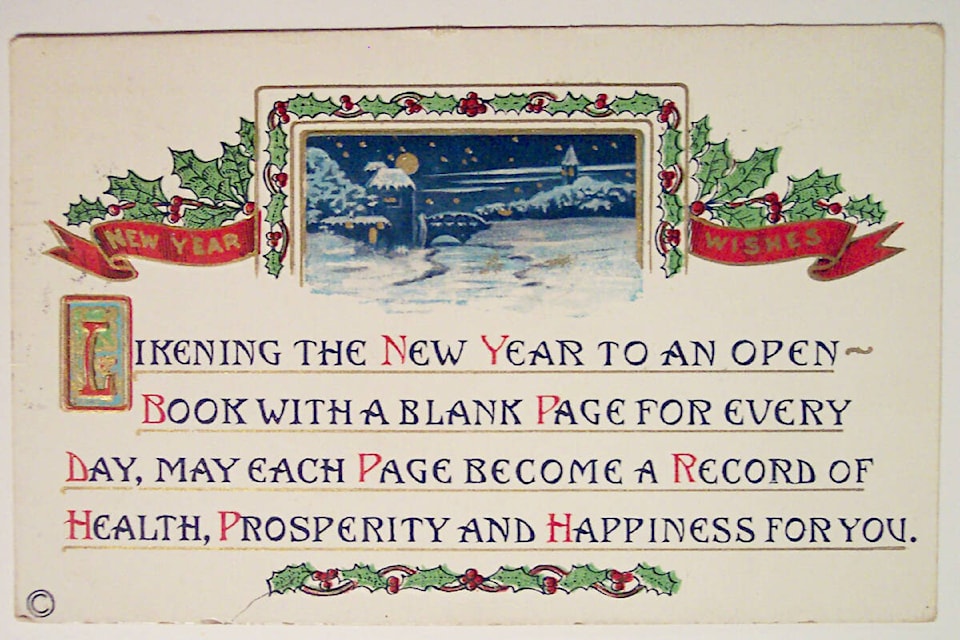 NEW YEAR WISHES
LIKENING THE NEW YEAR TO AN OPEN~
BOOK WITH A BLANK PAGE FOR EVERY
DAY, MAY EACH PAGE BECOME A RECORD OF
HEALTH, PROSPERITY AND HAPPINESS FOR YOU.
©